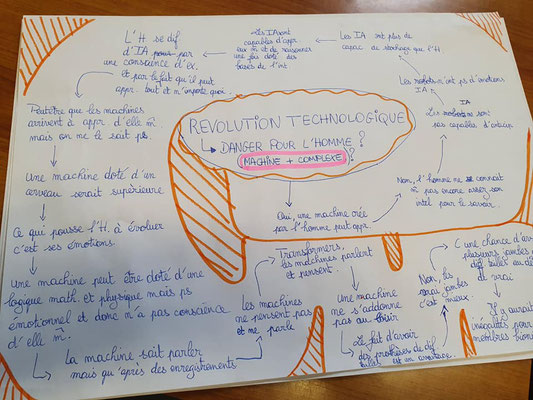 REVOLUTION TECHNOLOGIQUE
DANGER POUR L'HOMME ?
MACHINE + COMPLEXE ?
Oui, une machine crée
par l'homme peut appr.
Non, l'homme ne se connait
m̂ pas encore assez son
intel pour le savoir.
IA
Les robots son
pas capable d'anticip
Les robots n'ont ps d'émotions
IA
Les IA ont plus de
capac de stockage que l'H
Les IA sont
capables d'appr
eux m̂ et de raisonner
une fois doté des
bases de l'int.
L'H se dif
d'IA pour par
une conscience d'ex.
et par le fait qu'il peut
appr. tout et n'importe quoi.
Peut être que les machines
arrivent à appr d'elle m̂
mais on ne le sait ps.
Une machine doté d'un
cerveau serait supérieure
Ce que pousse l'H. à évoluer
c'est ses émotions.
Une machine peut être doté d'une
logique math. et physique mais ps
émotionnel et donc n'a pas conscience
d'elle m̂.
La machine sait parler
mais qu'après des enregistrements
les machines
ne pensent pas
et ne parle
Transformers,
les machines parlent
et pensent.
Une machine
ne s'adonne
pas au
Le fait d'avoir
des prothèses de dif
tailles est un avantage.
Non, les
vrai jambes
c'est mieux.
C une chance d'av
plusieurs jambes
dif tailles au
de vrai
Il y aurait
inégalités pour
membres bioni